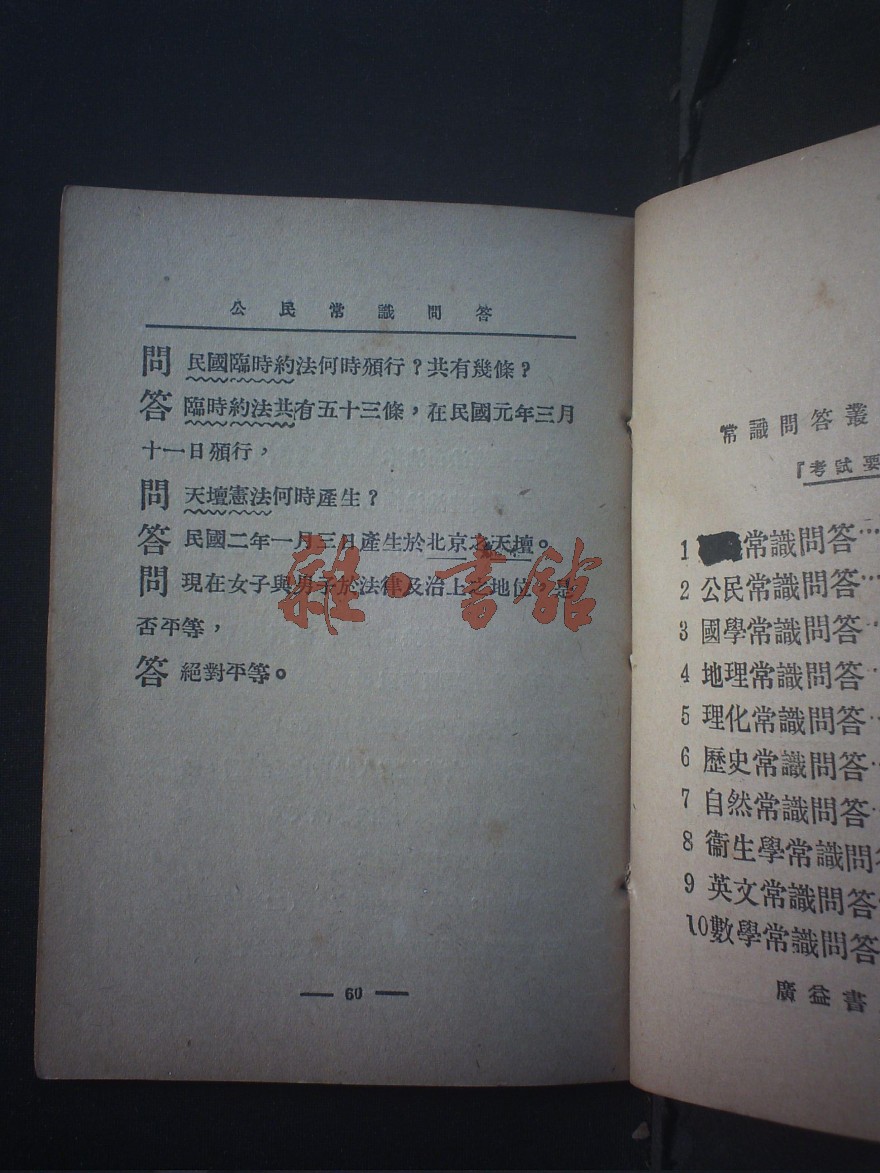 公民常識問答
問 民國臨時約法何時頒行？共有幾條？
答 臨時約法共有五十三條，在民國元年三月
十一日頒行，
問 天壇憲法何時產生？
答 民國二年一月三日產生於北京之天壇。
問 現在女子與男子於法律及治上之地位，是
否平等，
答 絕對平等。
— 60 —
雜·書館
常識問答叢
『考試要
1 常識問答…
2 公民常識問答…
3 國學常識問答…
4 地理常識問答…
5 理化常識問答…
6 歷史常識問答…
7 自然常識問答…
8 衞生學常識問答
9 英文常識問答…
10數學常識問答
廣益書